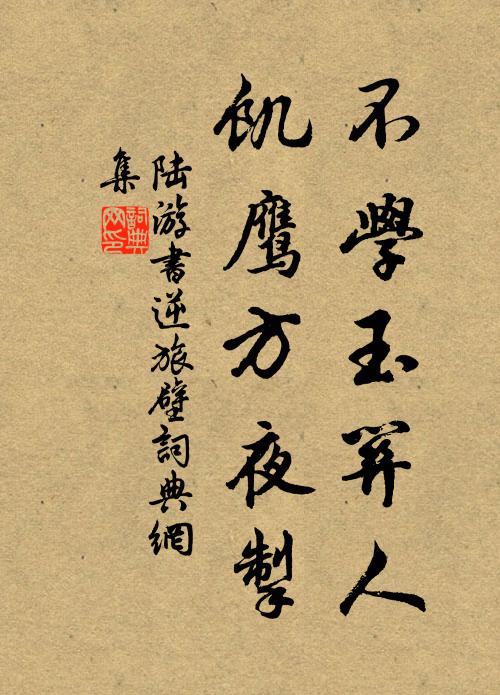 不學玉笄人
飢鷹方夜掣
陸游書逆旅壁詞典網
集
詞典網印